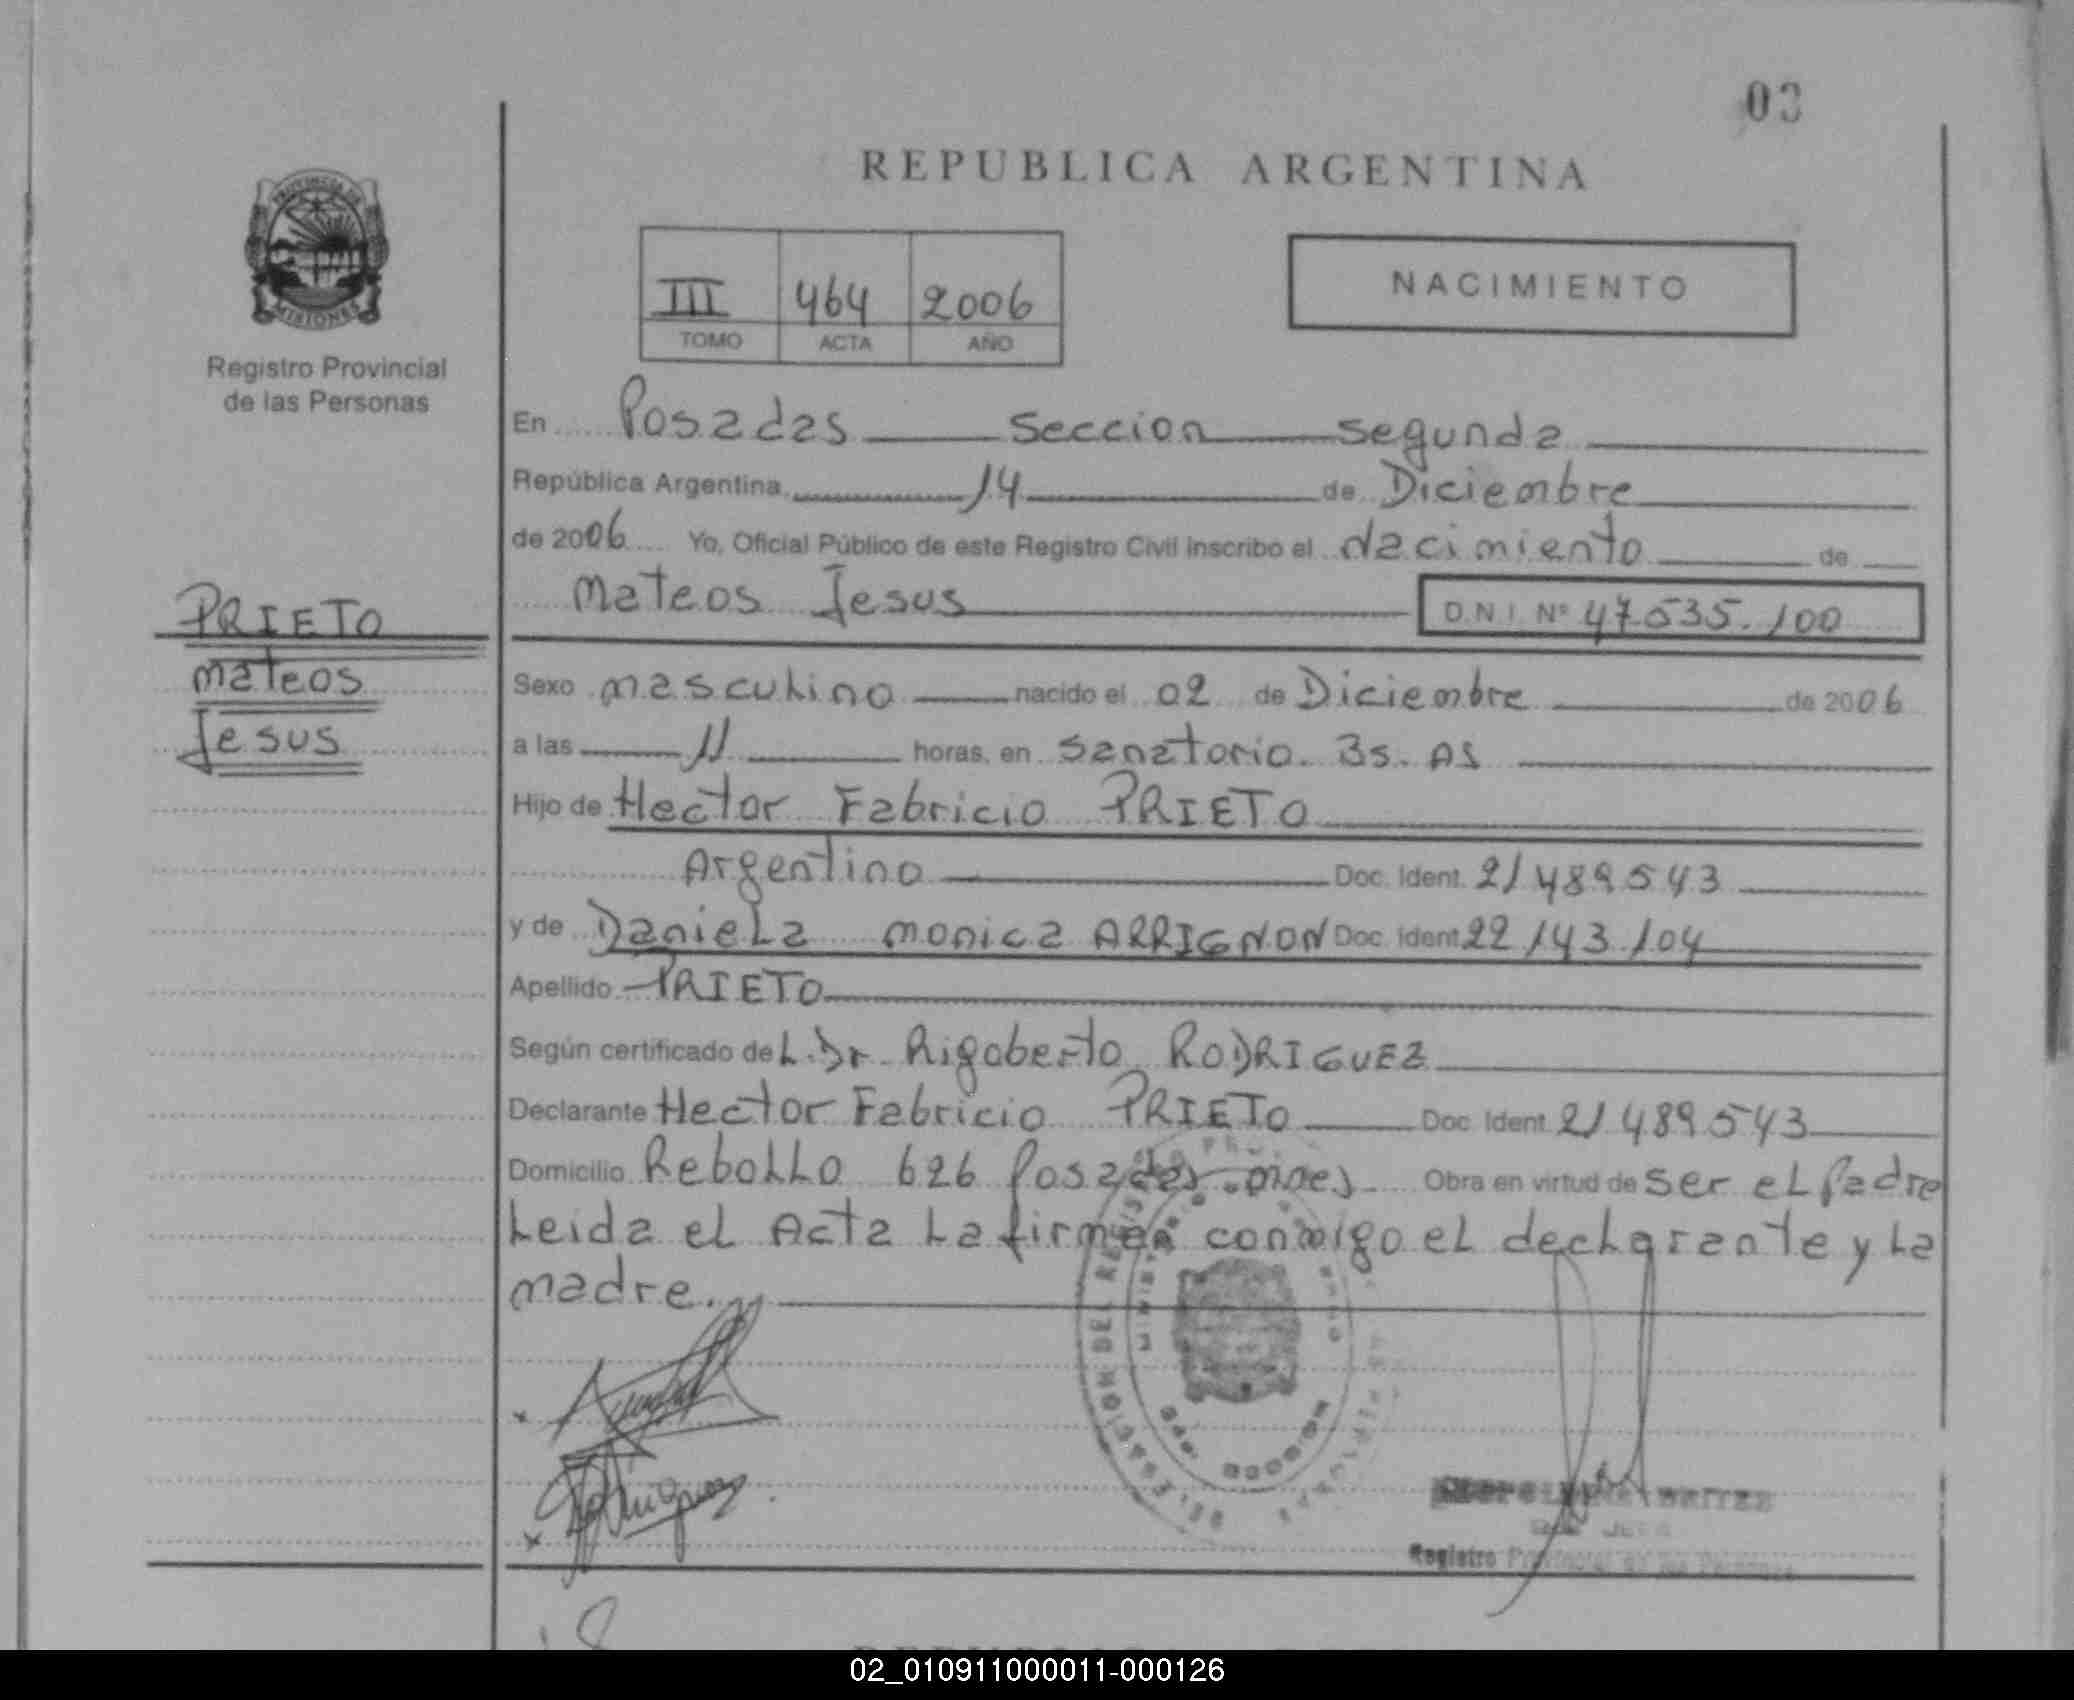 03
REPUBLICA ARGENTINA
PROVINCIA DE
MISIONES
Registro Provincial
de las Personas
III 464 2006
TOMO ACTA AÑO
NACIMIENTO
En Posadas Seccion segunda
República Argentina, 14 de Diciembre
de 2006 Yo, Oficial Público de este Registro Civil inscribo el nacimiento de
Mateos Jesus D.N.I. Nº 47535.100
PRIETO
mateos
Jesus
Sexo masculino nacido el 02 de Diciembre de 2006
a las 11 horas, en Sanatorio. Bs. As
Hijo de Hector Fabricio PRIETO
Argentino Doc. Ident. 21489543
y de Daniela monica ARRIGNON Doc. Ident 22143.104
Apellido PRIETO
Según certificado del. Dr. Rigoberto RODRIGUEZ
Declarante Hector Fabricio PRIETO Doc. Ident. 21489543
Domicilio Rebollo 626 Posadas mnes Obra en virtud de ser el Padre
Leida el Acta la firman conmigo el declarante y la
madre.
DELEGACION DEL REGISTRO
Registro Provincial de las Personas
02_010911000011-000126